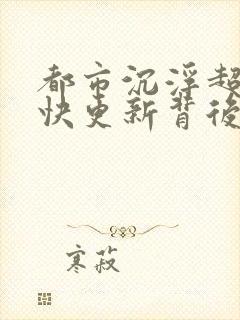 都市沉浮超
快更新背後
寒菽